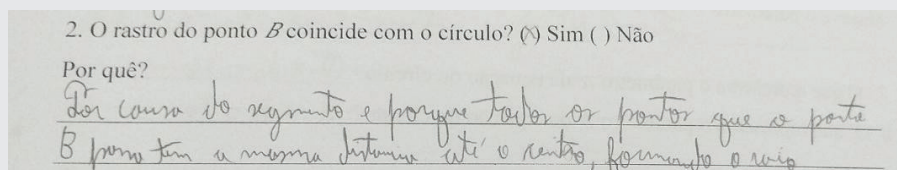 2. O rastro do ponto B coincide com o círculo? (X) Sim ( ) Não
Por quê?
Por causa do segmento e porque todos os pontos que o ponto
B passa tem a mesma distancia até o centro, formando o raio